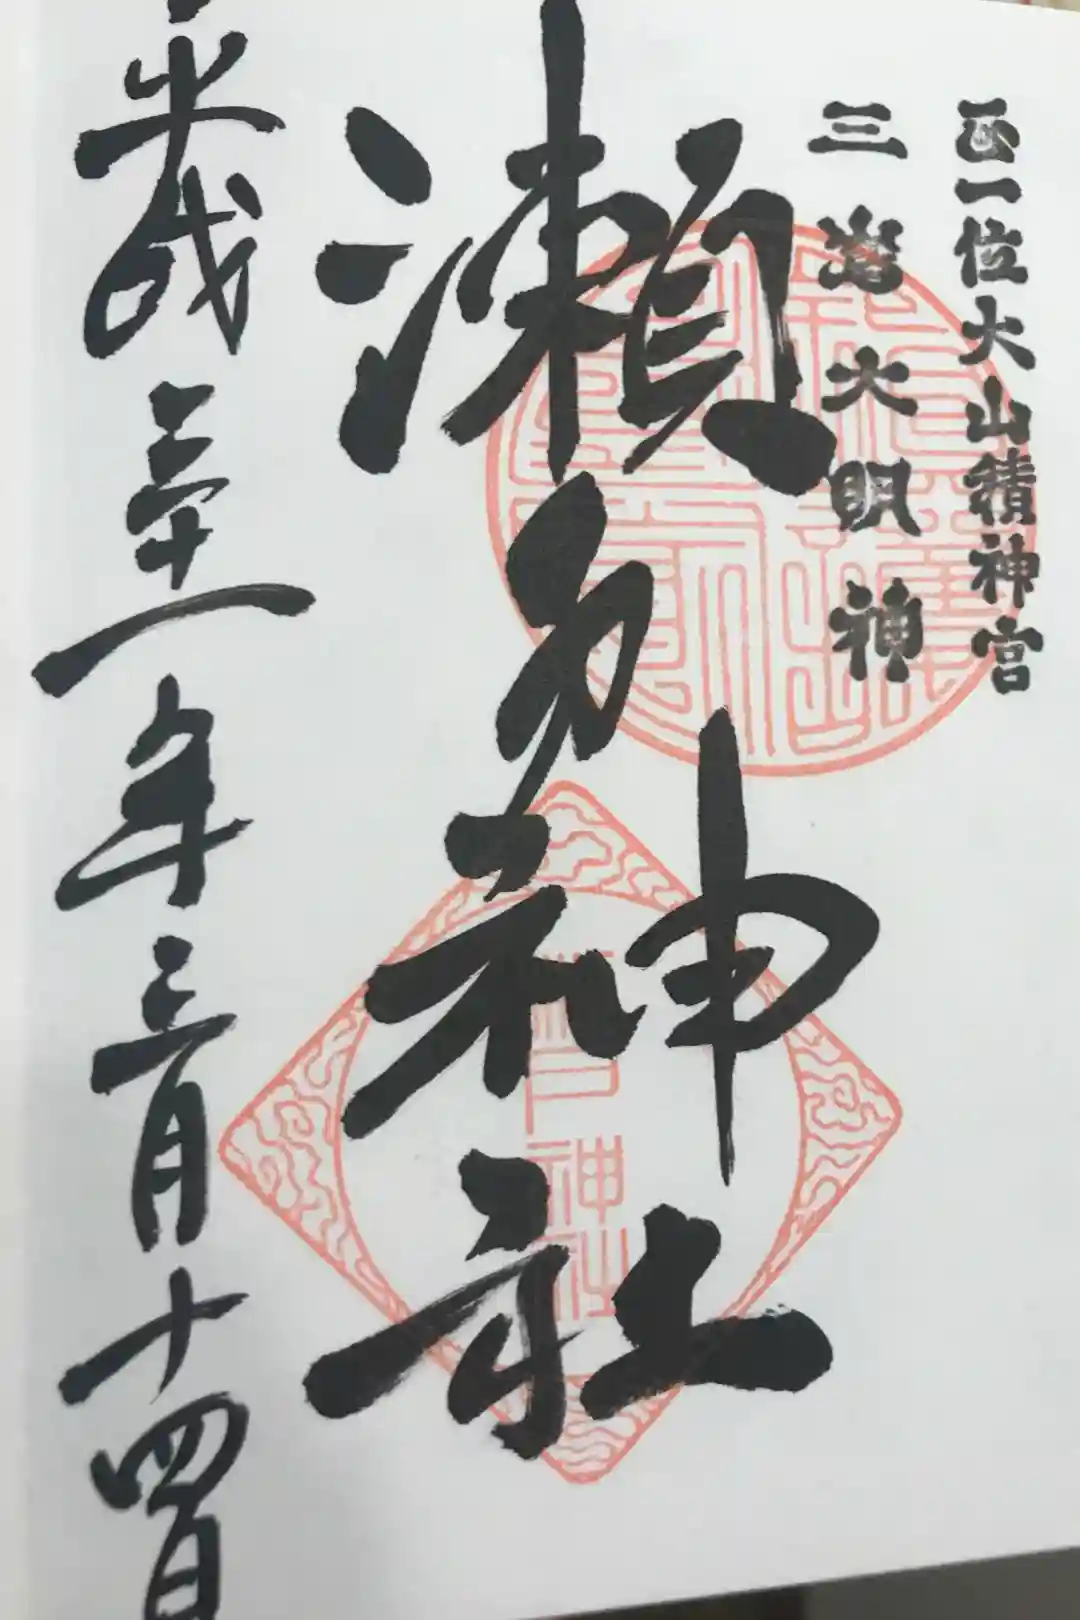 正一位大山積神宮
三嶌大明神
瀬戸神社
平成三十一年三月十四日
戸神社